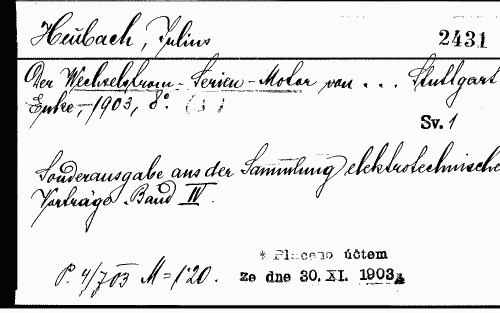 Heubach, Julius
2431
Der Wechselstrom-Serien-Motor von ... Stuttgart
Enke, 1903, 8°.
Sv. 1
Sonderausgabe aus der Sammlung elektrotechnische
Vorträge. Band IV.
* Placeno účtem
P. 4/703 M = 1·20.
ze dne 30. XI. 1903